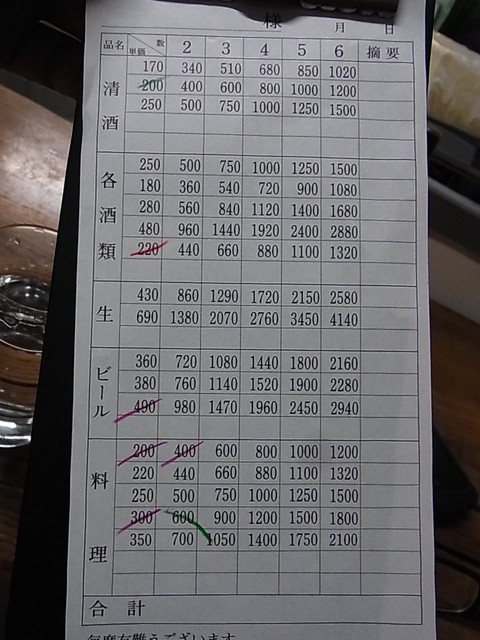 様 月 日
品名 単価 数 2 3 4 5 6 摘要
清酒
170 340 510 680 850 1020
200 400 600 800 1000 1200
250 500 750 1000 1250 1500
各酒類
250 500 750 1000 1250 1500
180 360 540 720 900 1080
280 560 840 1120 1400 1680
480 960 1440 1920 2400 2880
220 440 660 880 1100 1320
生
430 860 1290 1720 2150 2580
690 1380 2070 2760 3450 4140
ビール
360 720 1080 1440 1800 2160
380 760 1140 1520 1900 2280
490 980 1470 1960 2450 2940
料理
200 400 600 800 1000 1200
220 440 660 880 1100 1320
250 500 750 1000 1250 1500
300 600 900 1200 1500 1800
350 700 1050 1400 1750 2100
合計
毎度有難うございます